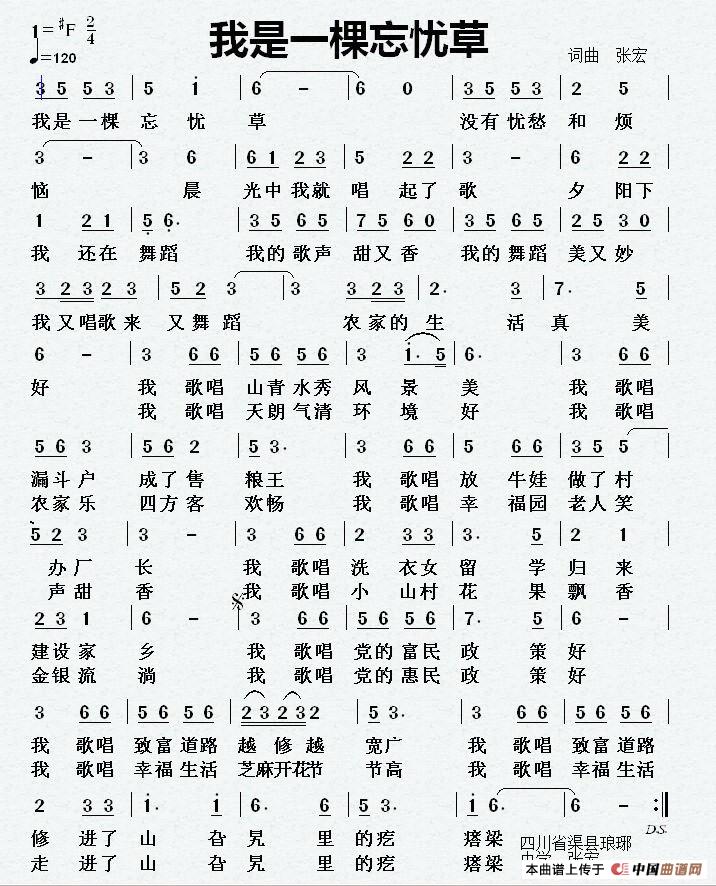 我是一棵忘忧草
1=#F 2/4
♩=120
词曲 张宏
3 5 5 3 | 5 1 | 6 – | 6 0 | 3 5 5 3 | 2 5 |
我是一棵 忘 忧 草 没有忧愁 和 烦
3 – | 3 6 | 6 1 2 3 | 5 2 2 | 3 – | 6 2 2 |
恼 晨 光中我就 唱 起了 歌 夕 阳下
1 2 1 | 5 6. | 3 5 6 5 | 7 5 6 0 | 3 5 6 5 | 2 5 3 0 |
我 还在 舞蹈 我的歌声 甜又香 我的舞蹈 美又妙
3 2 3 2 3 | 5 2 3 | 3 3 2 3 | 2. 5 | 7. 5 |
我又唱歌来 又舞蹈 农家的 生 活 真 美
6 – | 3 6 6 | 5 6 5 6 | 3 1. 5 | 6. | 3 6 6 |
好 我 歌唱 山青水秀 风 景 美 我 歌唱
我 歌唱 天朗气清 环 境 好 我 歌唱
5 6 3 | 5 6 2 | 5 3. | 3 6 6 | 5 6 6 | 3 5 5 |
漏斗户 成了售 粮王 我 歌唱 放 牛娃 做了村
农家乐 四方客 欢畅 我 歌唱 幸 福园 老人笑
5 2 3 | 3 – | 3 6 6 | 2 3 3 | 3. 5 | 2 1 |
办厂 长 我 歌唱 洗 衣女 留 学 归 来
声甜 香 我 歌唱 小 山村 花 果 飘 香
2 3 1 | 6 – | 3 6 6 | 5 6 5 6 | 7. 5 | 6 – |
建设家 乡 我 歌唱 党的富民 政 策 好
金银流 淌 我 歌唱 党的惠民 政 策 好
3 6 6 | 5 6 5 6 | 2 3 2 3 2 | 5 3. | 3 6 6 | 5 6 5 6 |
我 歌唱 致富道路 越 修 越 宽广 我 歌唱 致富道路
我 歌唱 幸福生活 芝麻开花节 节高 我 歌唱 幸福生活
2 3 3 | 1. 1 | 6. 6 | 5. 5 | 1 6. | 6 – :||
D.S.
修 进了 山 旮 旯 里 的 疙 瘩梁
走 进了 山 旮 旯 里 的 疙 瘩梁
四川省渠县琅琊
中学 张宏
本曲谱上传于 中国曲谱网